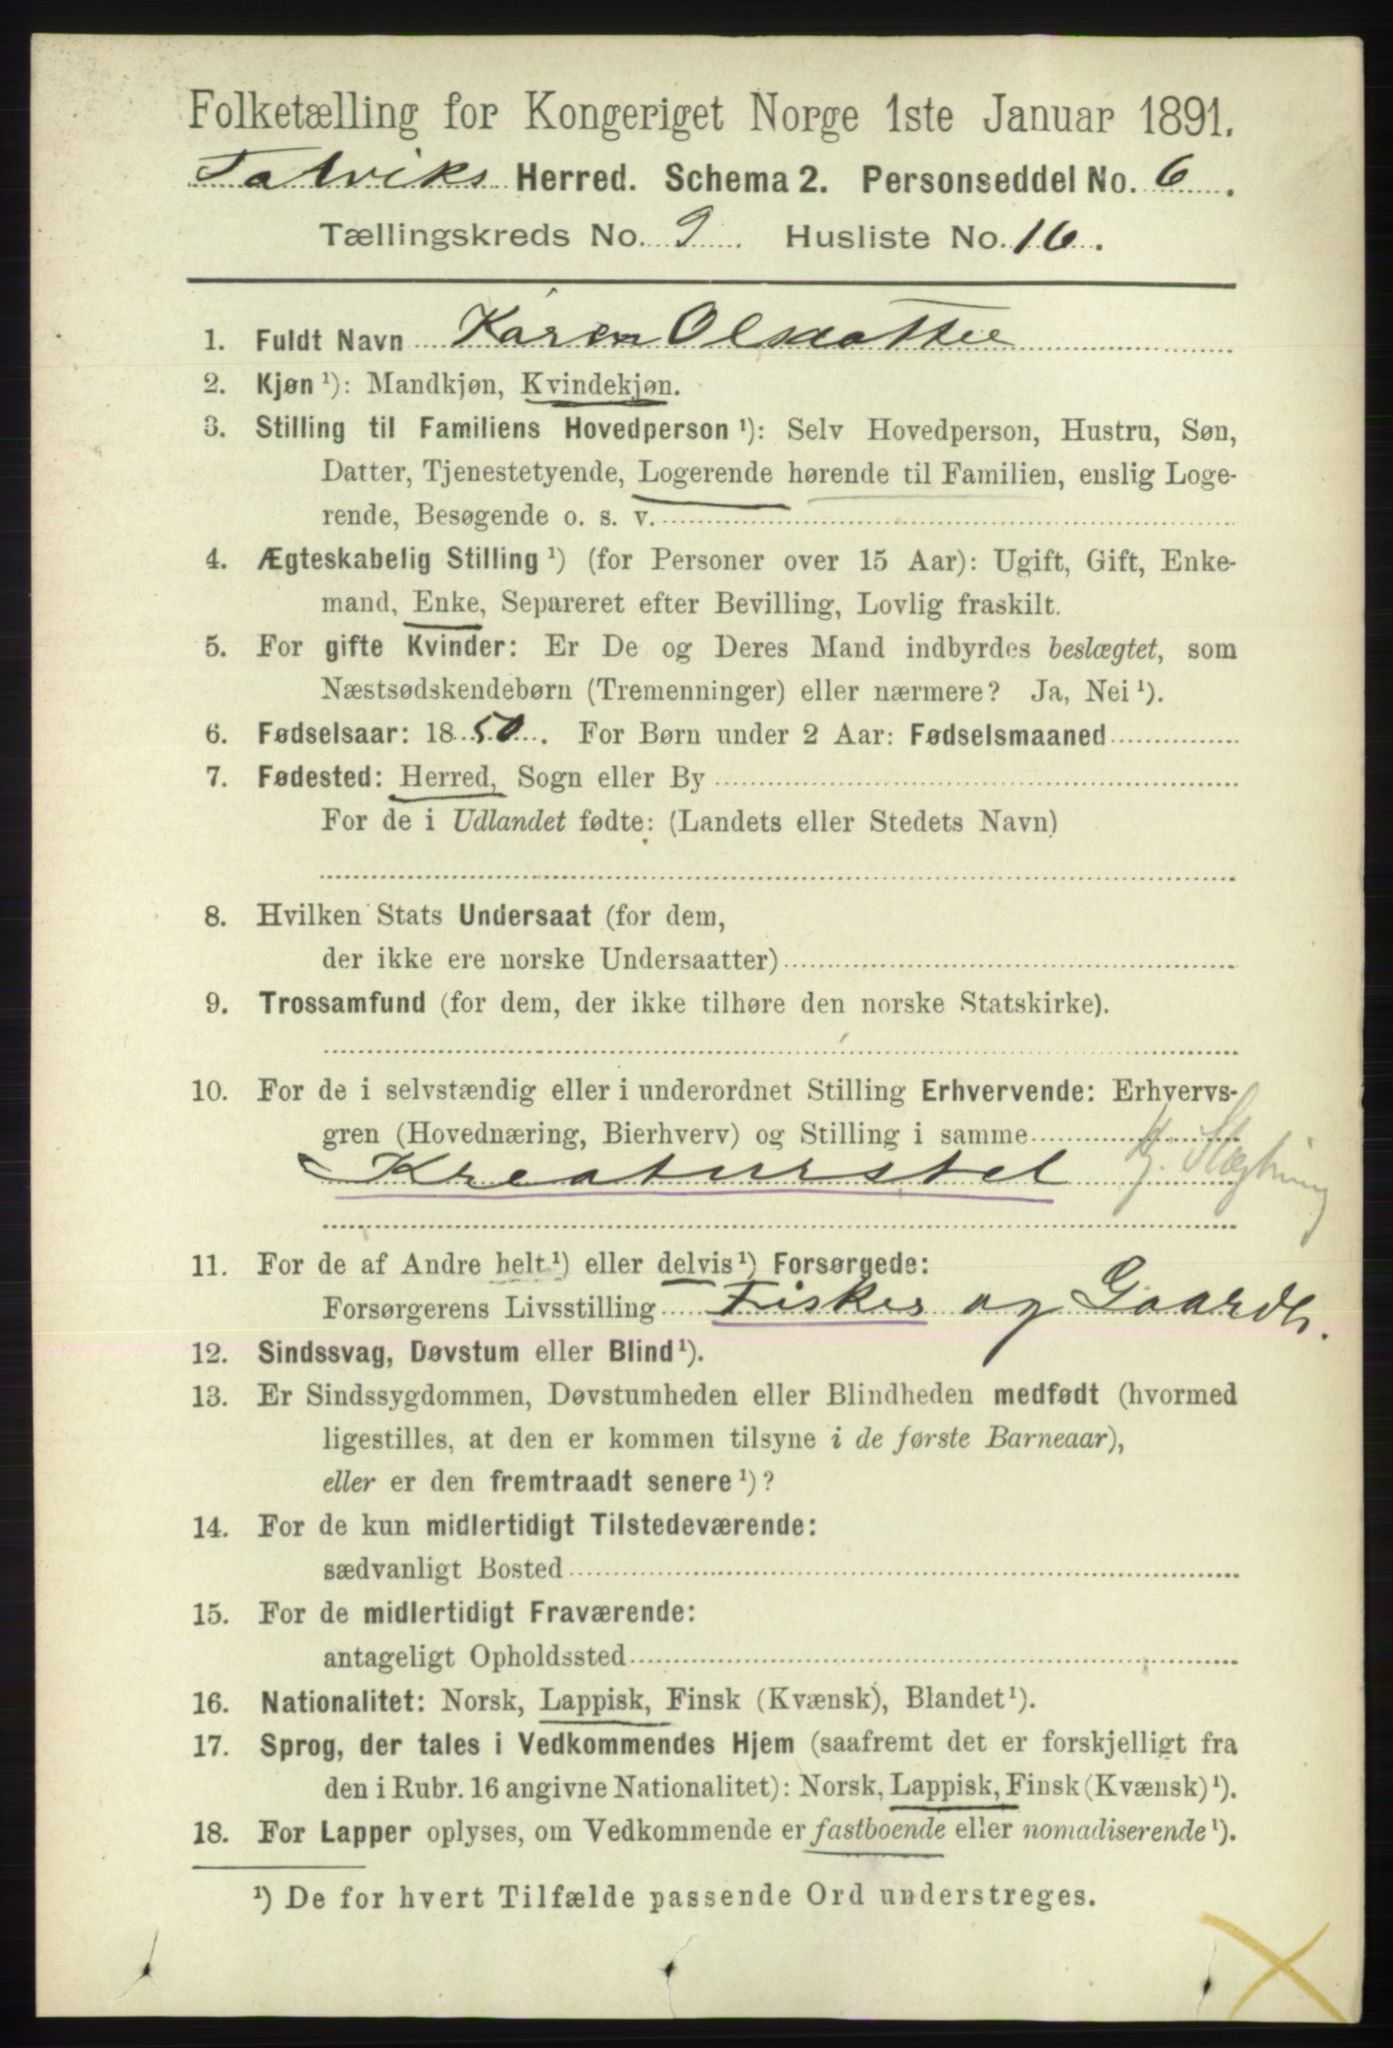 Folketælling for Kongeriget Norge 1ste Januar 1891.
Talviks Herred. Schema 2. Personseddel No. 6.
Tællingskreds No. 9. Husliste No. 16.
1. Fuldt Navn Karen Olsdatter
2. Kjøn ¹): Mandkjøn, Kvindekjøn.
3. Stilling til Familiens Hovedperson ¹): Selv Hovedperson, Hustru, Søn,
Datter, Tjenestetyende, Logerende hørende til Familien, enslig Loge-
rende, Besøgende o. s. v.
4. Ægteskabelig Stilling ¹) (for Personer over 15 Aar): Ugift, Gift, Enke-
mand, Enke, Separeret efter Bevilling, Lovlig fraskilt.
5. For gifte Kvinder: Er De og Deres Mand indbyrdes beslægtet, som
Næstsødskendebørn (Tremenninger) eller nærmere? Ja, Nei ¹).
6. Fødselsaar: 1850. For Børn under 2 Aar: Fødselsmaaned
7. Fødested: Herred, Sogn eller By
For de i Udlandet fødte: (Landets eller Stedets Navn)
8. Hvilken Stats Undersaat (for dem,
der ikke ere norske Undersaatter)
9. Trossamfund (for dem, der ikke tilhøre den norske Statskirke).
10. For de i selvstændig eller i underordnet Stilling Erhvervende: Erhvervs-
gren (Hovednæring, Bierhverv) og Stilling i samme
Kreaturstel
11. For de af Andre helt ¹) eller delvis ¹) Forsørgede:
Forsørgerens Livsstilling Fisker og Gaardb.
12. Sindssvag, Døvstum eller Blind ¹).
13. Er Sindssygdommen, Døvstumheden eller Blindheden medfødt (hvormed
ligestilles, at den er kommen tilsyne i de første Barneaar),
eller er den fremtraadt senere ¹)?
14. For de kun midlertidigt Tilstedeværende:
sædvanligt Bosted
15. For de midlertidigt Fraværende:
antageligt Opholdssted
16. Nationalitet: Norsk, Lappisk, Finsk (Kvænsk), Blandet ¹).
17. Sprog, der tales i Vedkommendes Hjem (saafremt det er forskjelligt fra
den i Rubr. 16 angivne Nationalitet): Norsk, Lappisk, Finsk (Kvænsk) ¹).
18. For Lapper oplyses, om Vedkommende er fastboende eller nomadiserende ¹).
¹) De for hvert Tilfælde passende Ord understreges.